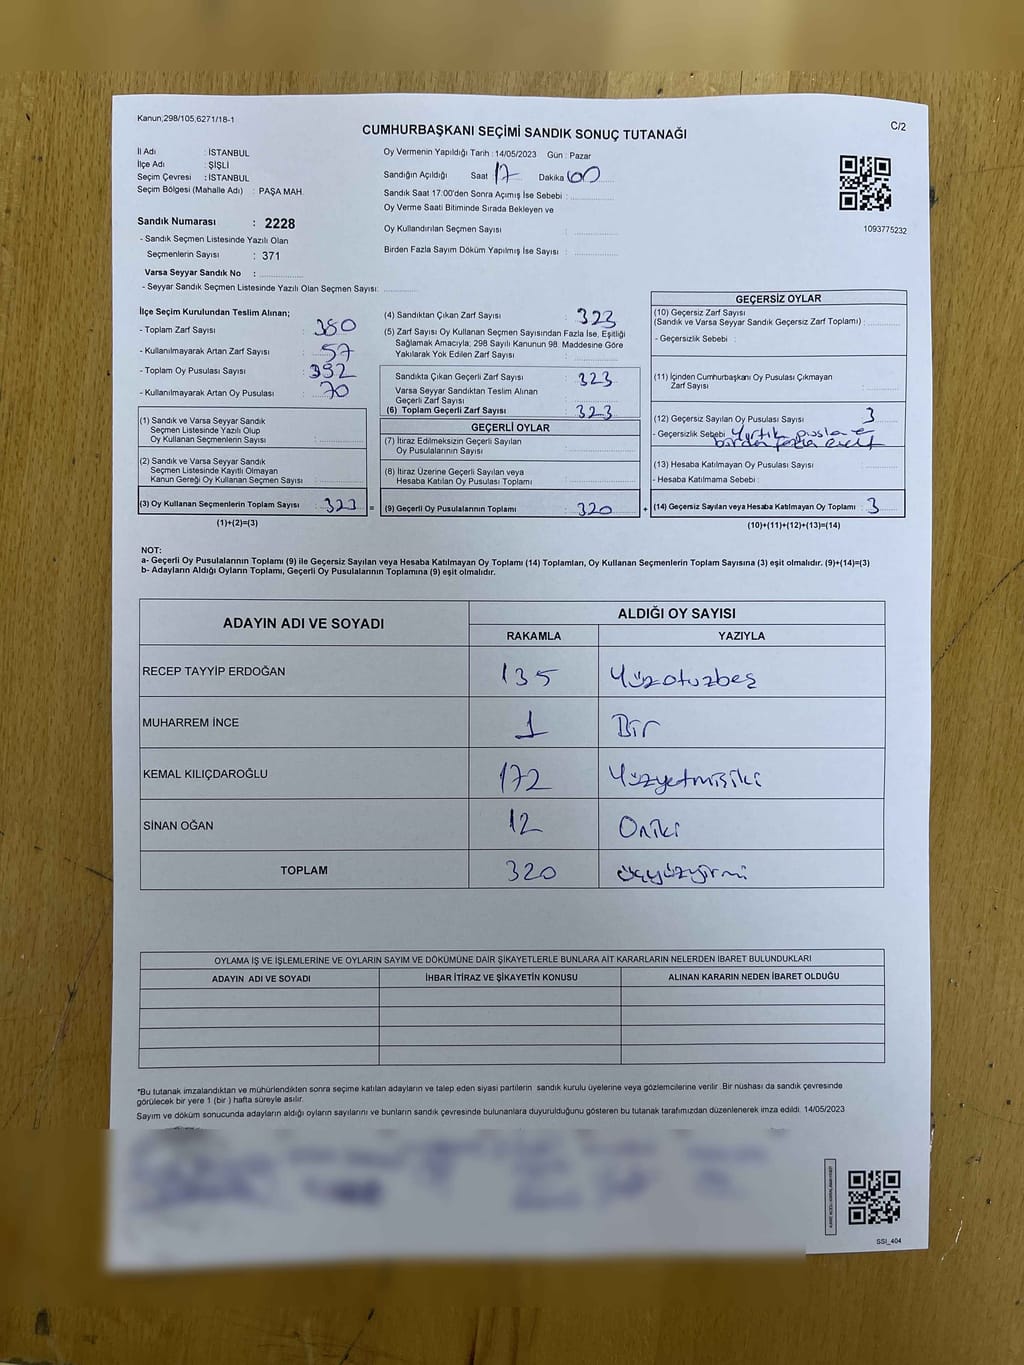 Kanun;298/105,6271/18-1
C/2
CUMHURBAŞKANI SEÇİMİ SANDIK SONUÇ TUTANAĞI
İl Adı : İSTANBUL
İlçe Adı : ŞİŞLİ
Seçim Çevresi : İSTANBUL
Seçim Bölgesi (Mahalle Adı) : PAŞA MAH.
Sandık Numarası : 2228
- Sandık Seçmen Listesinde Yazılı Olan
Seçmenlerin Sayısı : 371
Varsa Seyyar Sandık No :
- Seyyar Sandık Seçmen Listesinde Yazılı Olan Seçmen Sayısı:
Oy Vermenin Yapıldığı Tarih : 14/05/2023 Gün : Pazar
Sandığın Açıldığı Saat 17 Dakika 00
Sandık Saat 17:00'den Sonra Açımış İse Sebebi :
Oy Verme Saati Bitiminde Sırada Bekleyen ve
Oy Kullandırılan Seçmen Sayısı :
Birden Fazla Sayım Döküm Yapılmış İse Sayısı :
1093775232
İlçe Seçim Kurulundan Teslim Alınan;
- Toplam Zarf Sayısı : 380
- Kullanılmayarak Artan Zarf Sayısı : 57
- Toplam Oy Pusulası Sayısı : 392
- Kullanılmayarak Artan Oy Pusulası : 70
(1) Sandık ve Varsa Seyyar Sandık
Seçmen Listesinde Yazılı Olup
Oy Kullanan Seçmenlerin Sayısı :
(2) Sandık ve Varsa Seyyar Sandık
Seçmen Listesinde Kayıtlı Olmayan
Kanun Gereği Oy Kullanan Seçmen Sayısı :
(3) Oy Kullanan Seçmenlerin Toplam Sayısı : 323 =
(1)+(2)=(3)
(4) Sandıktan Çıkan Zarf Sayısı : 323
(5) Zarf Sayısı Oy Kullanan Seçmen Sayısından Fazla İse, Eşitliği
Sağlamak Amacıyla; 298 Sayılı Kanunun 98. Maddesine Göre
Yakılarak Yok Edilen Zarf Sayısı :
Sandıkta Çıkan Geçerli Zarf Sayısı : 323
Varsa Seyyar Sandıktan Teslim Alınan
Geçerli Zarf Sayısı :
(6) Toplam Geçerli Zarf Sayısı : 323
GEÇERLİ OYLAR
(7) İtiraz Edilmeksizin Geçerli Sayılan
Oy Pusulalarının Sayısı :
(8) İtiraz Üzerine Geçerli Sayılan veya
Hesaba Katılan Oy Pusulası Toplamı :
(9) Geçerli Oy Pusulalarının Toplamı : 320 +
GEÇERSİZ OYLAR
(10) Geçersiz Zarf Sayısı
(Sandık ve Varsa Seyyar Sandık Geçersiz Zarf Toplamı) :
- Geçersizlik Sebebi :
(11) İçinden Cumhurbaşkanı Oy Pusulası Çıkmayan
Zarf Sayısı :
(12) Geçersiz Sayılan Oy Pusulası Sayısı : 3
- Geçersizlik Sebebi : Yırtık pusla ve
birden fazla evet
(13) Hesaba Katılmayan Oy Pusulası Sayısı :
- Hesaba Katılmama Sebebi :
(14) Geçersiz Sayılan veya Hesaba Katılmayan Oy Toplamı : 3
(10)+(11)+(12)+(13)=(14)
NOT:
a- Geçerli Oy Pusulalarının Toplamı (9) ile Geçersiz Sayılan veya Hesaba Katılmayan Oy Toplamı (14) Toplamları, Oy Kullanan Seçmenlerin Toplam Sayısına (3) eşit olmalıdır. (9)+(14)=(3)
b- Adayların Aldığı Oyların Toplamı, Geçerli Oy Pusulalarının Toplamına (9) eşit olmalıdır.
ADAYIN ADI VE SOYADI
ALDIĞI OY SAYISI
RAKAMLA YAZIYLA
RECEP TAYYİP ERDOĞAN 135 Yüzotuzbeş
MUHARREM İNCE 1 Bir
KEMAL KILIÇDAROĞLU 172 Yüzyetmişiki
SİNAN OĞAN 12 Oniki
TOPLAM 320 üçyüzyirmi
OYLAMA İŞ VE İŞLEMLERİNE VE OYLARIN SAYIM VE DÖKÜMÜNE DAİR ŞİKAYETLERLE BUNLARA AİT KARARLARIN NELERDEN İBARET BULUNDUKLARI
ADAYIN ADI VE SOYADI İHBAR İTİRAZ VE ŞİKAYETİN KONUSU ALINAN KARARIN NEDEN İBARET OLDUĞU
*Bu tutanak imzalandıktan ve mühürlendikten sonra seçime katılan adayların ve talep eden siyasi partilerin sandık kurulu üyelerine veya gözlemcilerine verilir .Bir nüshası da sandık çevresinde
görülecek bir yere 1 (bir ) hafta süreyle asılır.
Sayım ve döküm sonucunda adayların aldığı oyların sayılarını ve bunların sandık çevresinde bulunanlara duyurulduğunu gösteren bu tutanak tarafımızdan düzenlenerek imza edildi. 14/05/2023
SSI_404